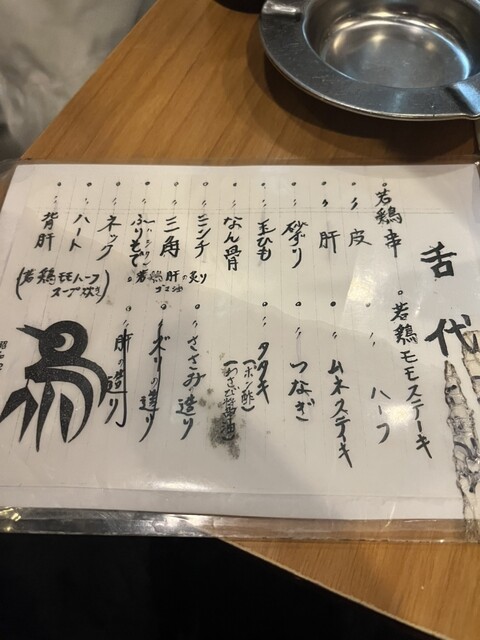 舌代
。若鶏串
〃皮
〃肝
〃砂ずり
〃玉ひも
〃なん骨
〃ミンチ
〃三角
〃ふりそで
〃ネック
〃ハート
〃背肝
。若鶏モモステーキ
〃ハーフ
〃ムネステイキ
〃つなぎ
〃タタキ
(ポン酢)
(わさび醤油)
〃ささみ造り
〃ズリの造り
〃肝の造り
。若鶏肝の炙り
ゴマ油
(若鶏モモハーフ
スープ炊き)